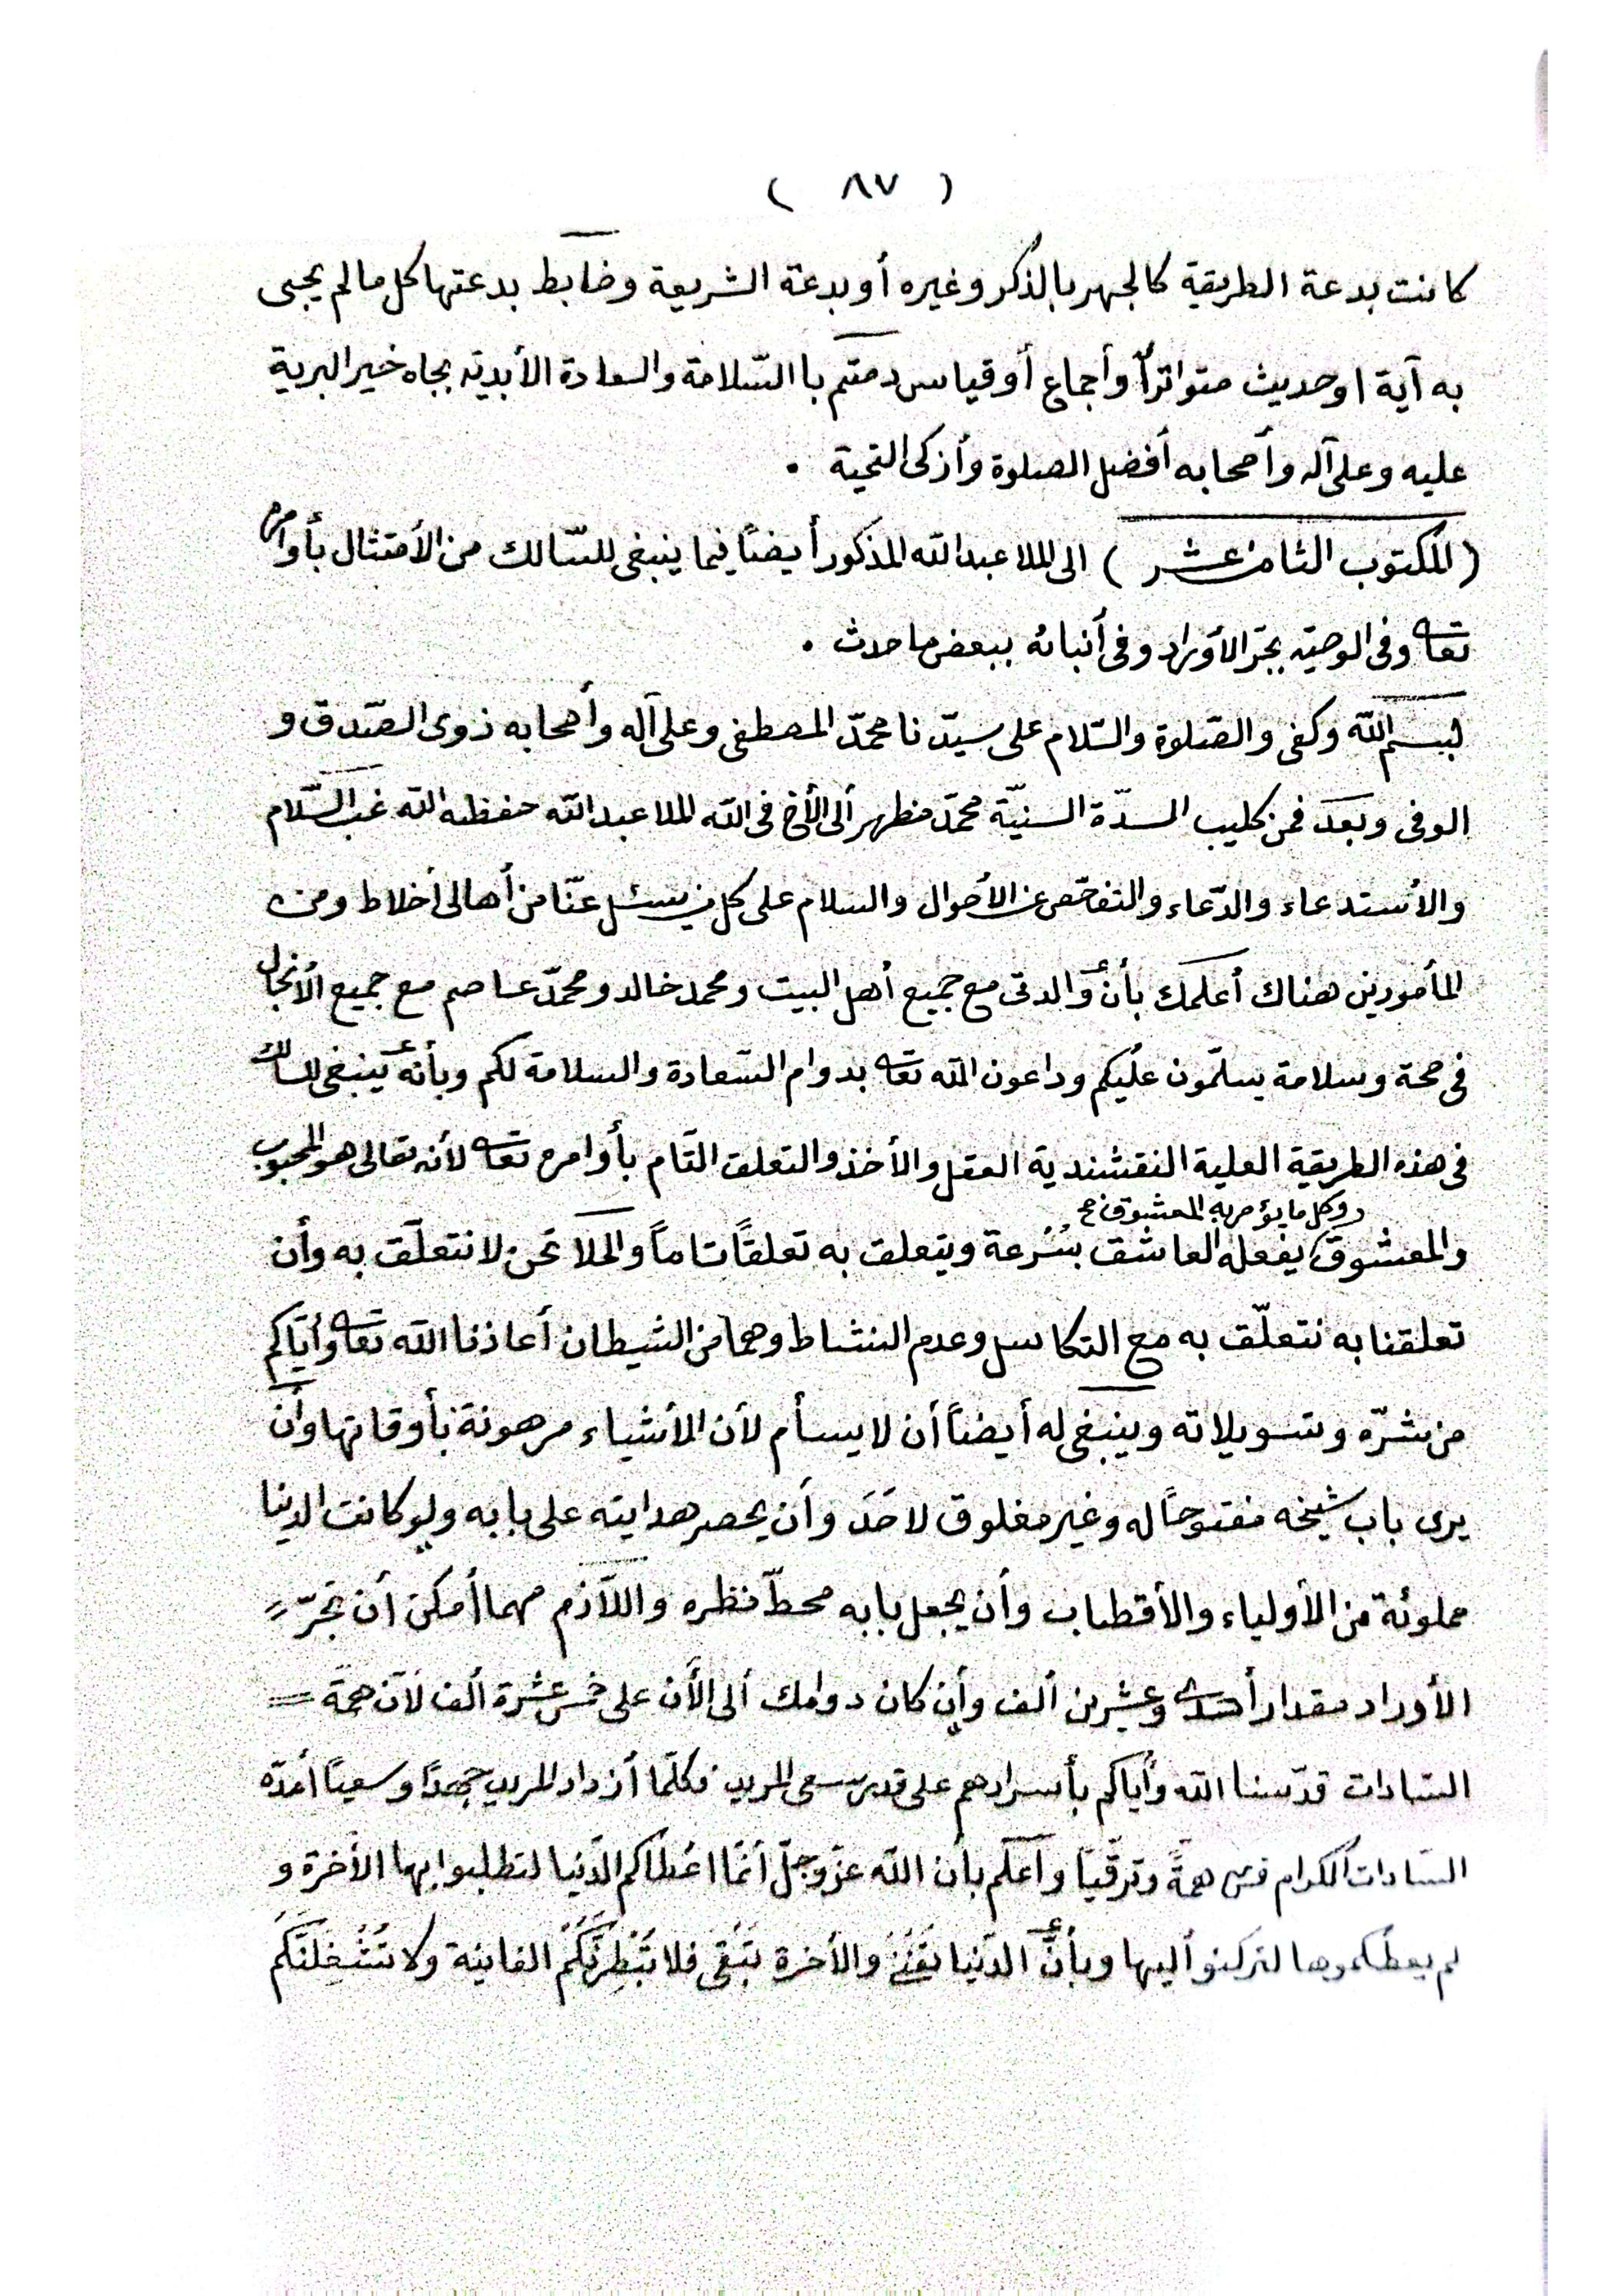 ( ٨٧ )
كانت بدعة الطريقة كالجهر بالذكر وغيره أو بدعة الشريعة وضابط بدعتها كل ما لم يجئ
به آية او حديث متواتراً وأجماع أو قياس دمتم با السّلامة والسعادة الأبديّه بجاه خير البرية
عليه وعلى آله وأصحابه أفضل الصلوة وأزكى التحية .
(المكتوب الثامن عشر) الى الملا عبدالله المذكور أيضاً فيما ينبغى للسّالك من الأمتثال بأوامره
تعالى وفى الوصيّه بجرّ الأوراد وفى أنبائه ببعض ما حدث .
بسم الله وكفى والصّلوة والسّلام على سيّدنا محمّد المصطفى وعلى آله وأصحابه ذوى الصّدق و
الوفى وبعد فمن كليب السدّة السنيّة محمّد مظهر ألى الأخ فى الله الملا عبدالله حفظه الله غب السّلام
والأستدعاء والدّعاء والتفحّص عن الأحوال والسلام على كل من يسئل عنّا من أهالى أخلاط ومن
المأمورين هناك أعلمك بأن والدتى مع جميع أهل البيت ومحمد خالد ومحمّد عاصم مع جميع الأنجال
فى صحة وسلامة يسلّمون عليكم وداعون الله تعالى بدوام السّعادة والسلامة لكم وبأنه ينبغى للسالك
فى هذه الطريقة العلية النقشندية العقل والأخذ والتعلق التام بأوامره تعالى لأنه تعالى هو المحبوب
وكل ما يؤمر به المعشوق صح
والمعشوق يفعله العاشق بسُرعة ويتعلق به تعلقاً تاماً والحلا نحن لا نتعلّق به وأن
تعلقنا به نتعلّق به مع التكاسل وعدم النشاط وهما من الشيطان أعاذنا الله تعالى وأيّاكم
من شرّه وتسويلاته وينبغى له أيضاً أن لا يسأم لأن الأشياء مرهونة بأوقاتها وأن
يرى باب شيخه مفتوحاً له وغير مغلوق لاحَدَ وأن يحصر هدايته على بابه ولو كانت الدنيا
مملوئة من الأولياء والأقطاب وأن يجعل بابه محطّ نظره واللّازم مهما أمكن أن تجرّ
الأوراد مقدار أحدى وعشرين ألف وأن كان دوامك ألى الأن على خمس عشرة ألف لأن همّة
السّادات قدّسنا الله وأياكم بأسرارهم على قدر سعى المريد فكلّما أزداد المريد جهداً وسعياً أمدّه
السّادات الكرام همةً وترقّياً وأعلم بأن الله عزّ وجلّ أنمّا اعطاكم الدّنيا لتطلبوا بها الأخرة و
لم يعطكموها لتركنو أليها وبأنّ الدّنيا تفنى والأخرة تَبْقى فلا تُبْطِرَنَّكُمُ الفانية ولا تَشْغِلَنَّكُم